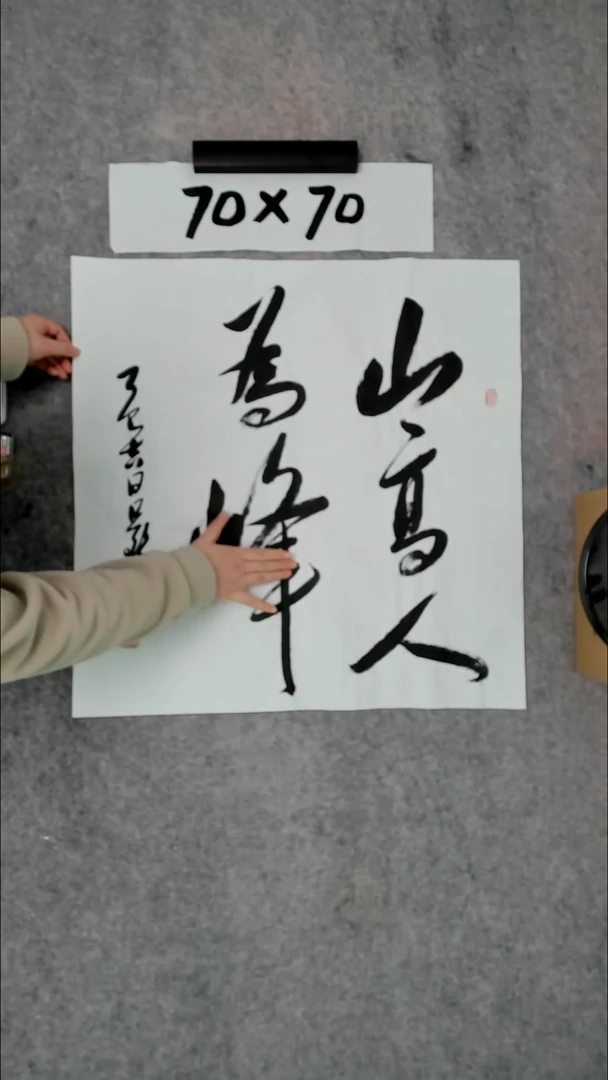 70×70
山高人
為峰